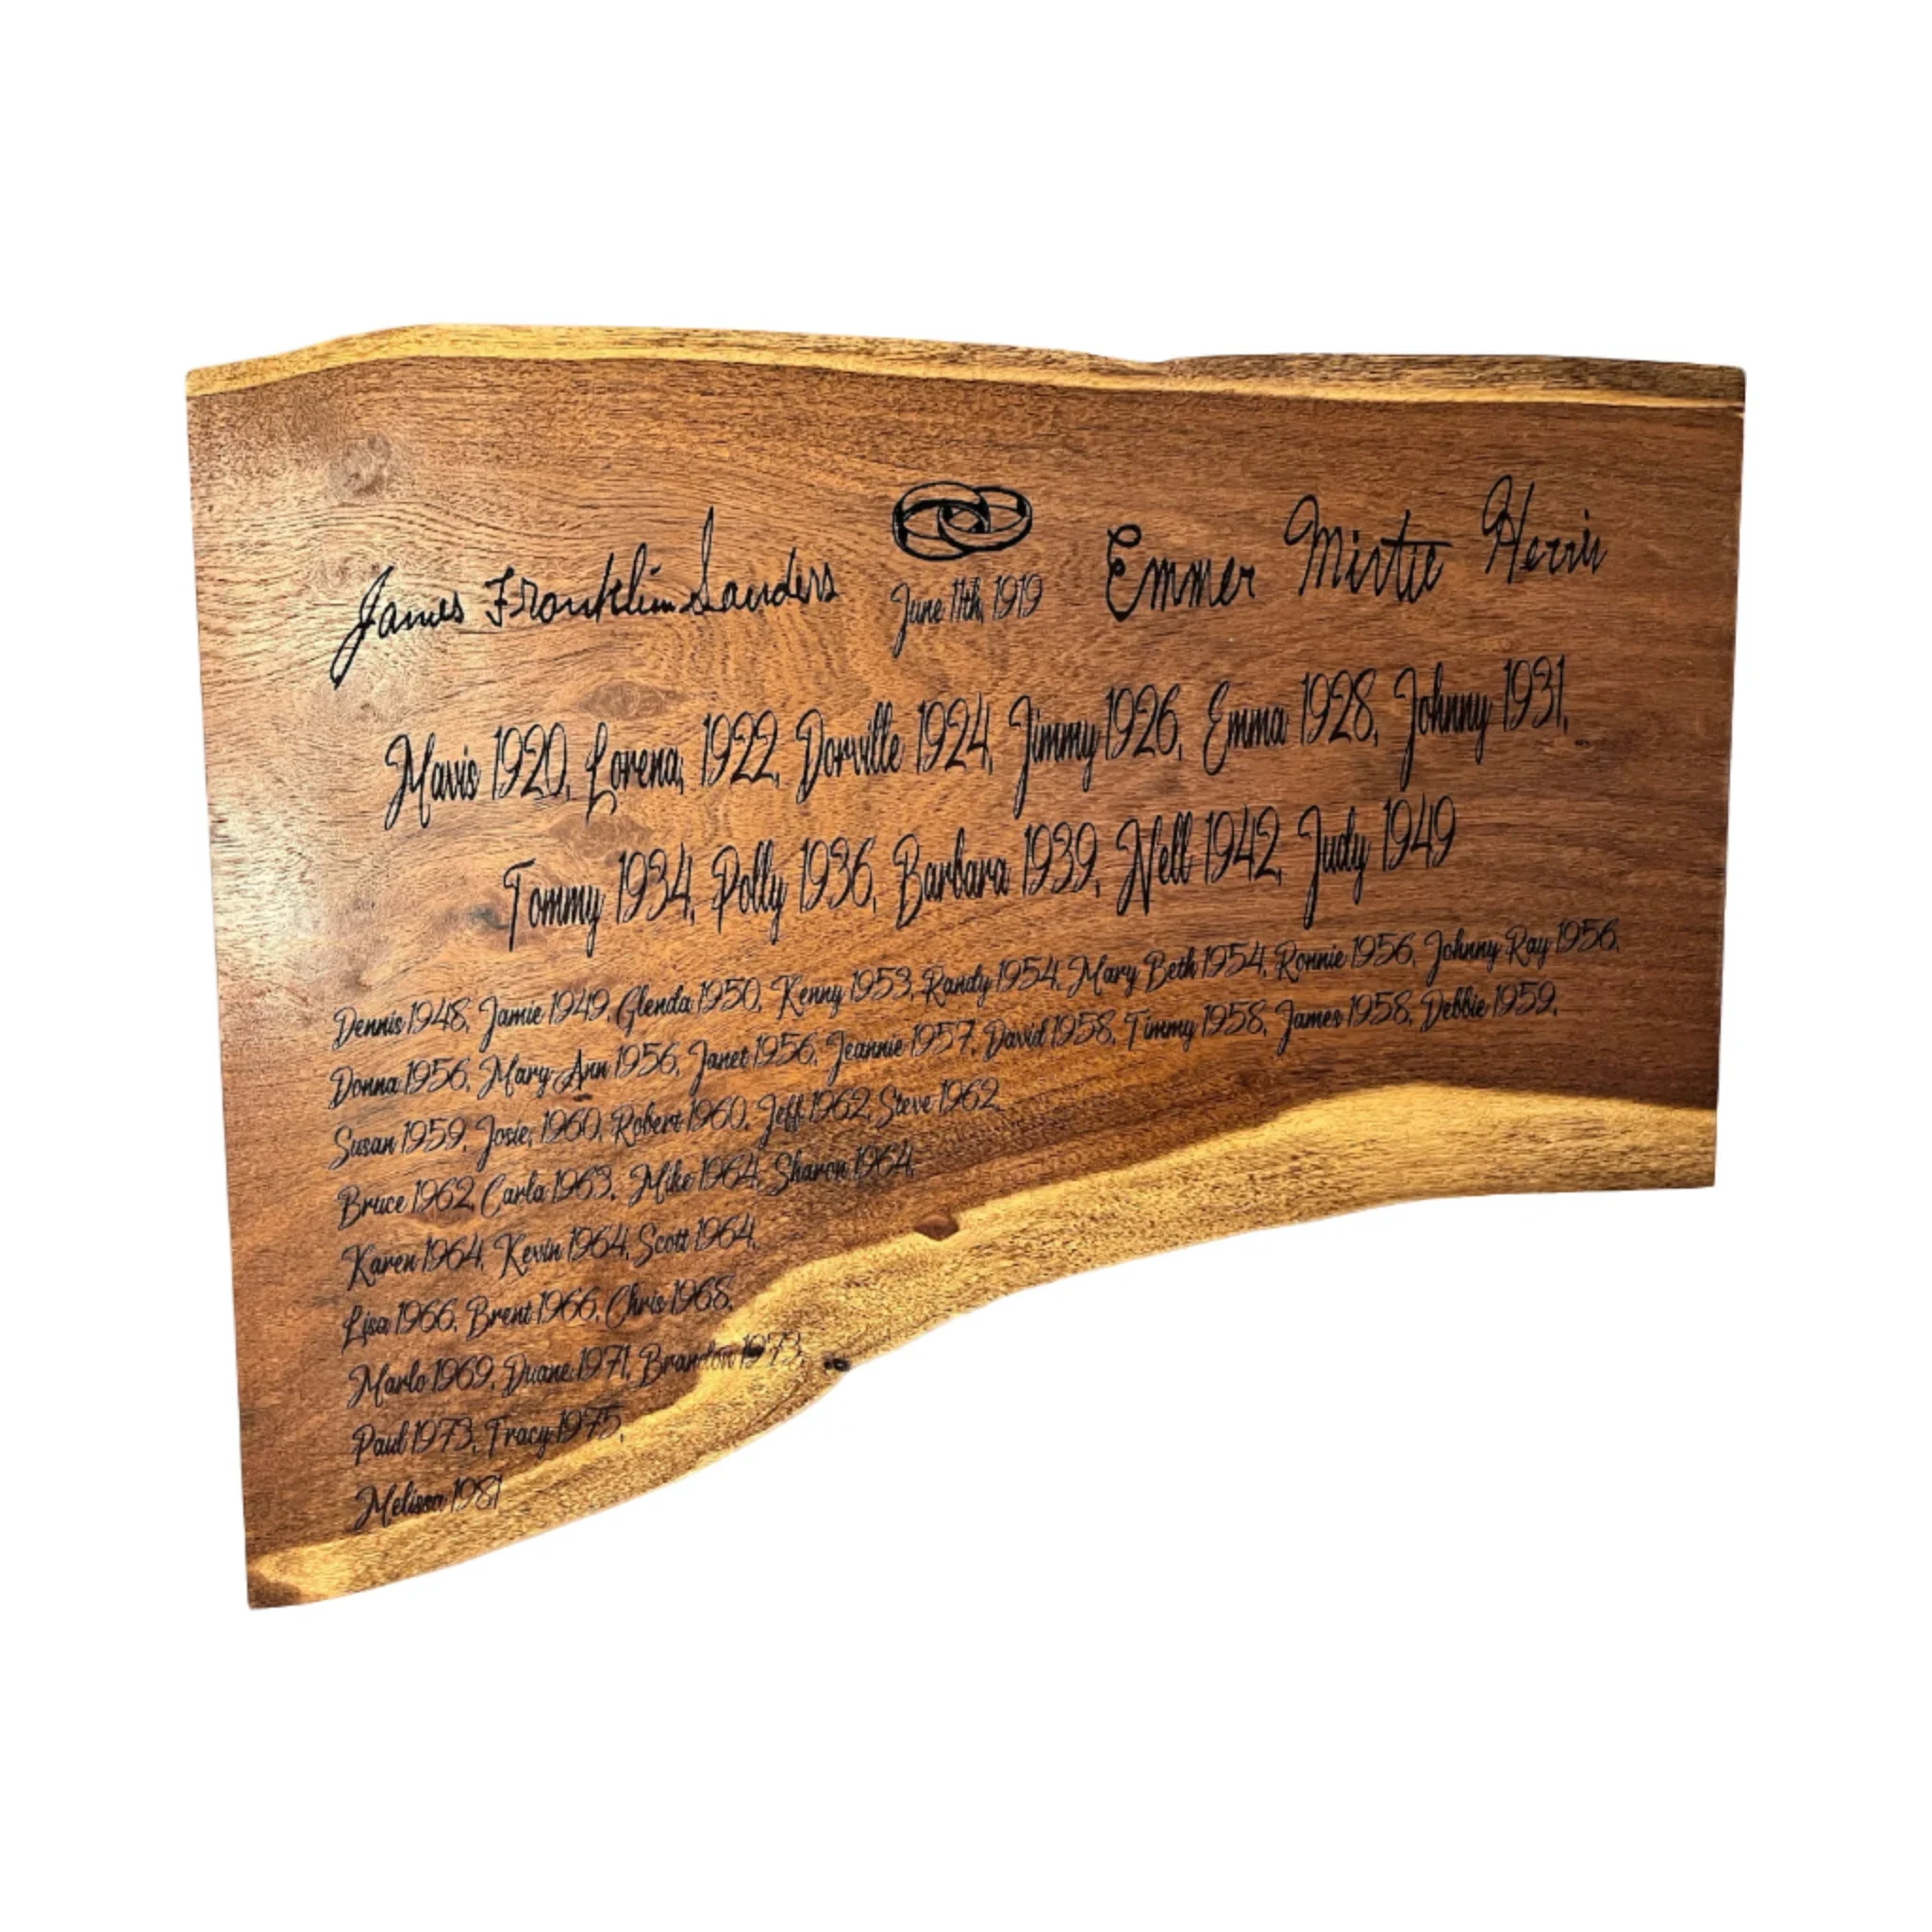 James Franklin Sanders June 11th, 1919 Emmer Mirtie Herrin
Mavis 1920, Lorena, 1922, Dorville 1924, Jimmy 1926, Emma 1928, Johnny 1931,
Tommy 1934, Polly 1936, Barbara 1939, Nell 1942, Judy 1949
Dennis 1948, Jamie 1949, Glenda 1950, Kenny 1953, Randy 1954, Mary Beth 1954, Ronnie 1956, Johnny Ray 1956,
Donna 1956, Mary Ann 1956, Janet 1956, Jeannie 1957, David 1958, Timmy 1958, James 1958, Debbie 1959,
Susan 1959, Josie, 1960, Robert 1960, Jeff 1962, Steve 1962,
Bruce 1962, Carla 1963, Mike 1964, Sharon 1964,
Karen 1964, Kevin 1964, Scott 1964,
Lisa 1966, Brent 1966, Chris 1968,
Marlo 1969, Duane 1971, Brandon 1973,
Paul 1973, Tracy 1975,
Melissa 1981